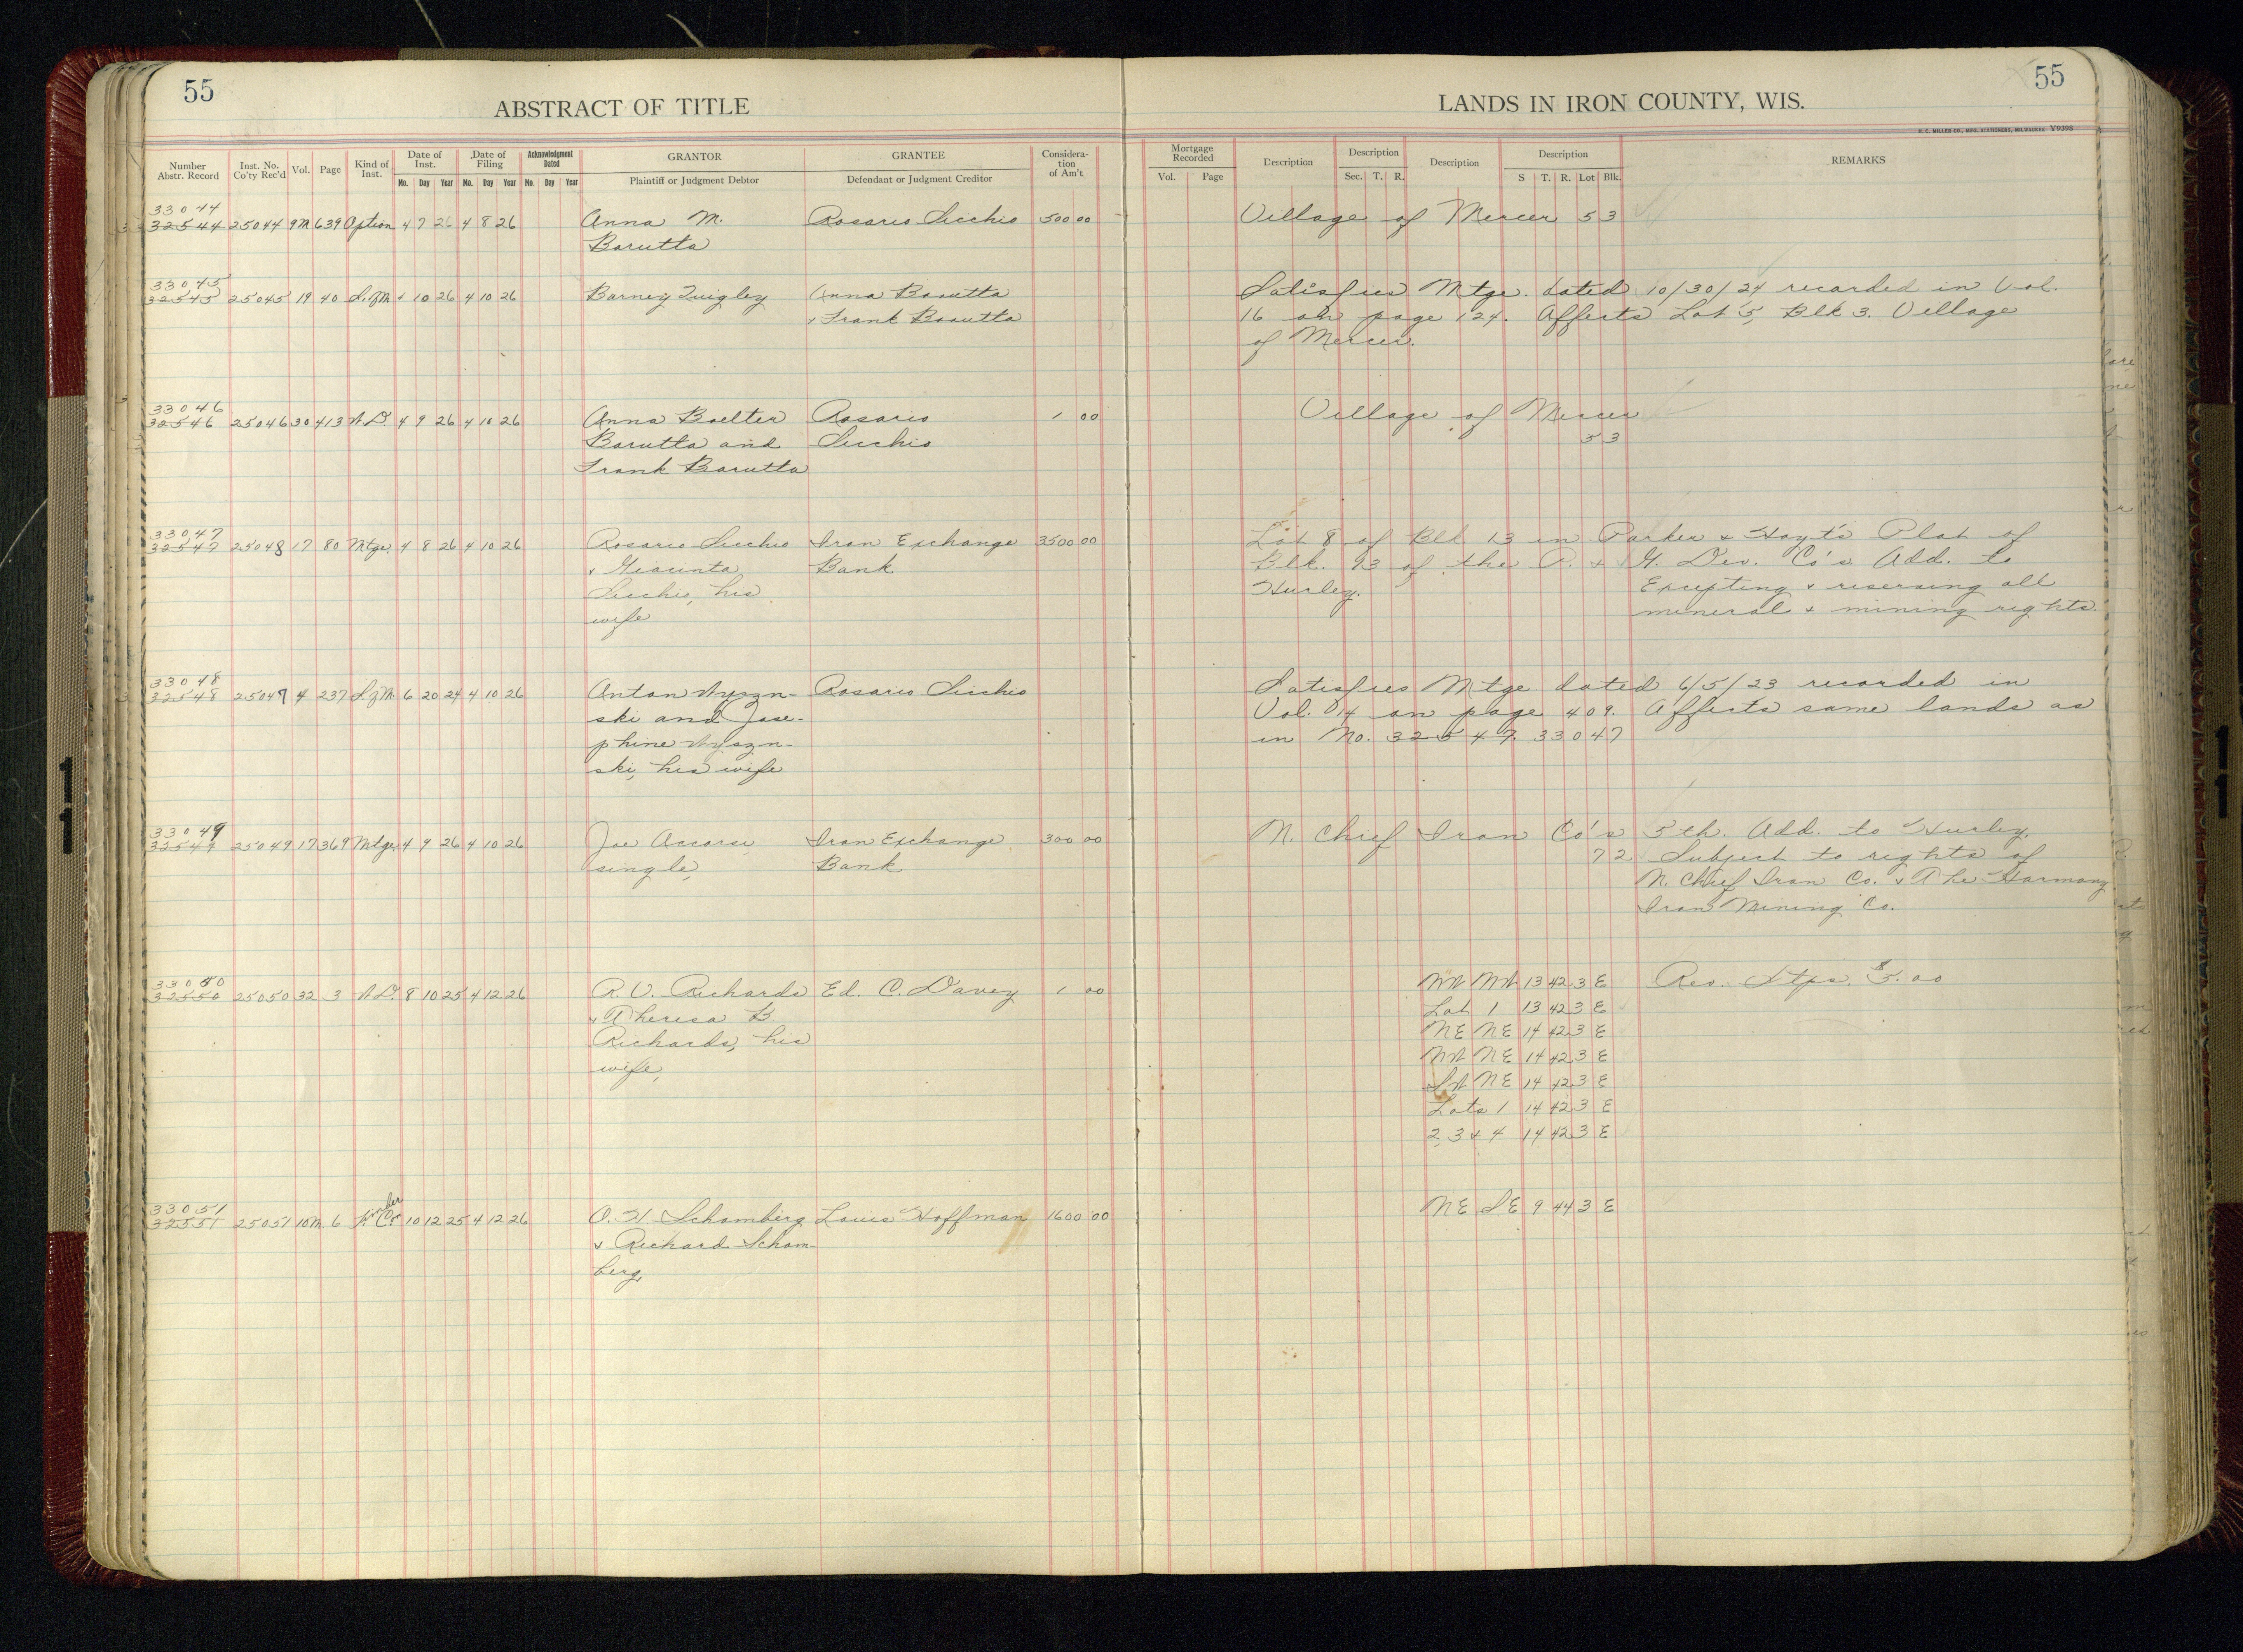 55
ABSTRACT OF TITLE
LANDS IN IRON COUNTY, WIS.
55
H. C. MILLER CO., MFG. STATIONERS, MILWAUKEE Y9398
Number Abstr. Record | Inst. No. Co'ty Rec'd | Vol. | Page | Kind of Inst. | Date of Inst. Mo. Day Year | Date of Filing Mo. Day Year | Acknowledgment Dated Mo. Day Year | GRANTOR Plaintiff or Judgment Debtor | GRANTEE Defendant or Judgment Creditor | Considera-tion of Am't | Mortgage Recorded Vol. Page | Description | Description Sec. T. R. | Description | Description S T. R. Lot Blk. | REMARKS
33044
32544 25044 9M 639 Option 4 7 26 4 8 26 Anna M. Rosario Sicchio 500 00 Village of Mercer 5 3
Barutta
33045
32545 25045 19 40 S.of M 4 10 26 4 10 26 Barney Quigley Anna Barutta Satisfies Mtge. dated 10/30/24 recorded in Vol.
& Frank Barutta 16 on page 124. Affects Lot 5, Blk 3. Village
of Mercer.
33046
32546 25046 30 413 W.D. 4 9 26 4 10 26 Anna Boelter Rosario 1 00 Village of Mercer
Barutta and Sicchio 5 3
Frank Barutta
33047
32547 25048 17 80 Mtge. 4 8 26 4 10 26 Rosario Sicchio Iron Exchange 3500 00 Lot 8 of Blk 13 in Parker & Hoyt's Plat of
& Giacinta Bank Blk. 93 of the P. & H. Dev. Co's Add. to
Sicchio, his Hurley. Excepting & reserving all
wife mineral & mining rights.
33048
32548 25047 4 237 S.of M. 6 20 24 4 10 26 Anton Wyszn- Rosario Sicchio Satisfies Mtge dated 6/5/23 recorded in
ski and Jose- Vol. 14 on page 409. Affects same lands as
phine Wyszn- in No. 32547. 33047
ski, his wife
33049
32549 25049 17 369 Mtge. 4 9 26 4 10 26 Joe Iron Exchange 300 00 N. Chief Iron Co's 5th. Add. to Hurley.
single, Bank 7 2 Subject to rights of
N. Chief Iron Co. & The Harmony
Iron Mining Co.
33050
32550 25050 32 3 W.D. 8 10 25 4 12 26 R. V. Richards Ed. C. Davey 1 00 NW NW 13 42 3 E Rev. Stps. $5.00
& Theresa B. Lot 1 13 42 3 E
Richards, his NE NE 14 42 3 E
wife, NW NE 14 42 3 E
SW NE 14 42 3 E
Lots 1 14 42 3 E
2, 3 & 4 14 42 3 E
33051
32551 25051 10M 6 10 12 25 4 12 26 O. H. Schomberg Louis Hoffman 1600 00 NE SE 9 44 3 E
& Richard Schom-
berg,